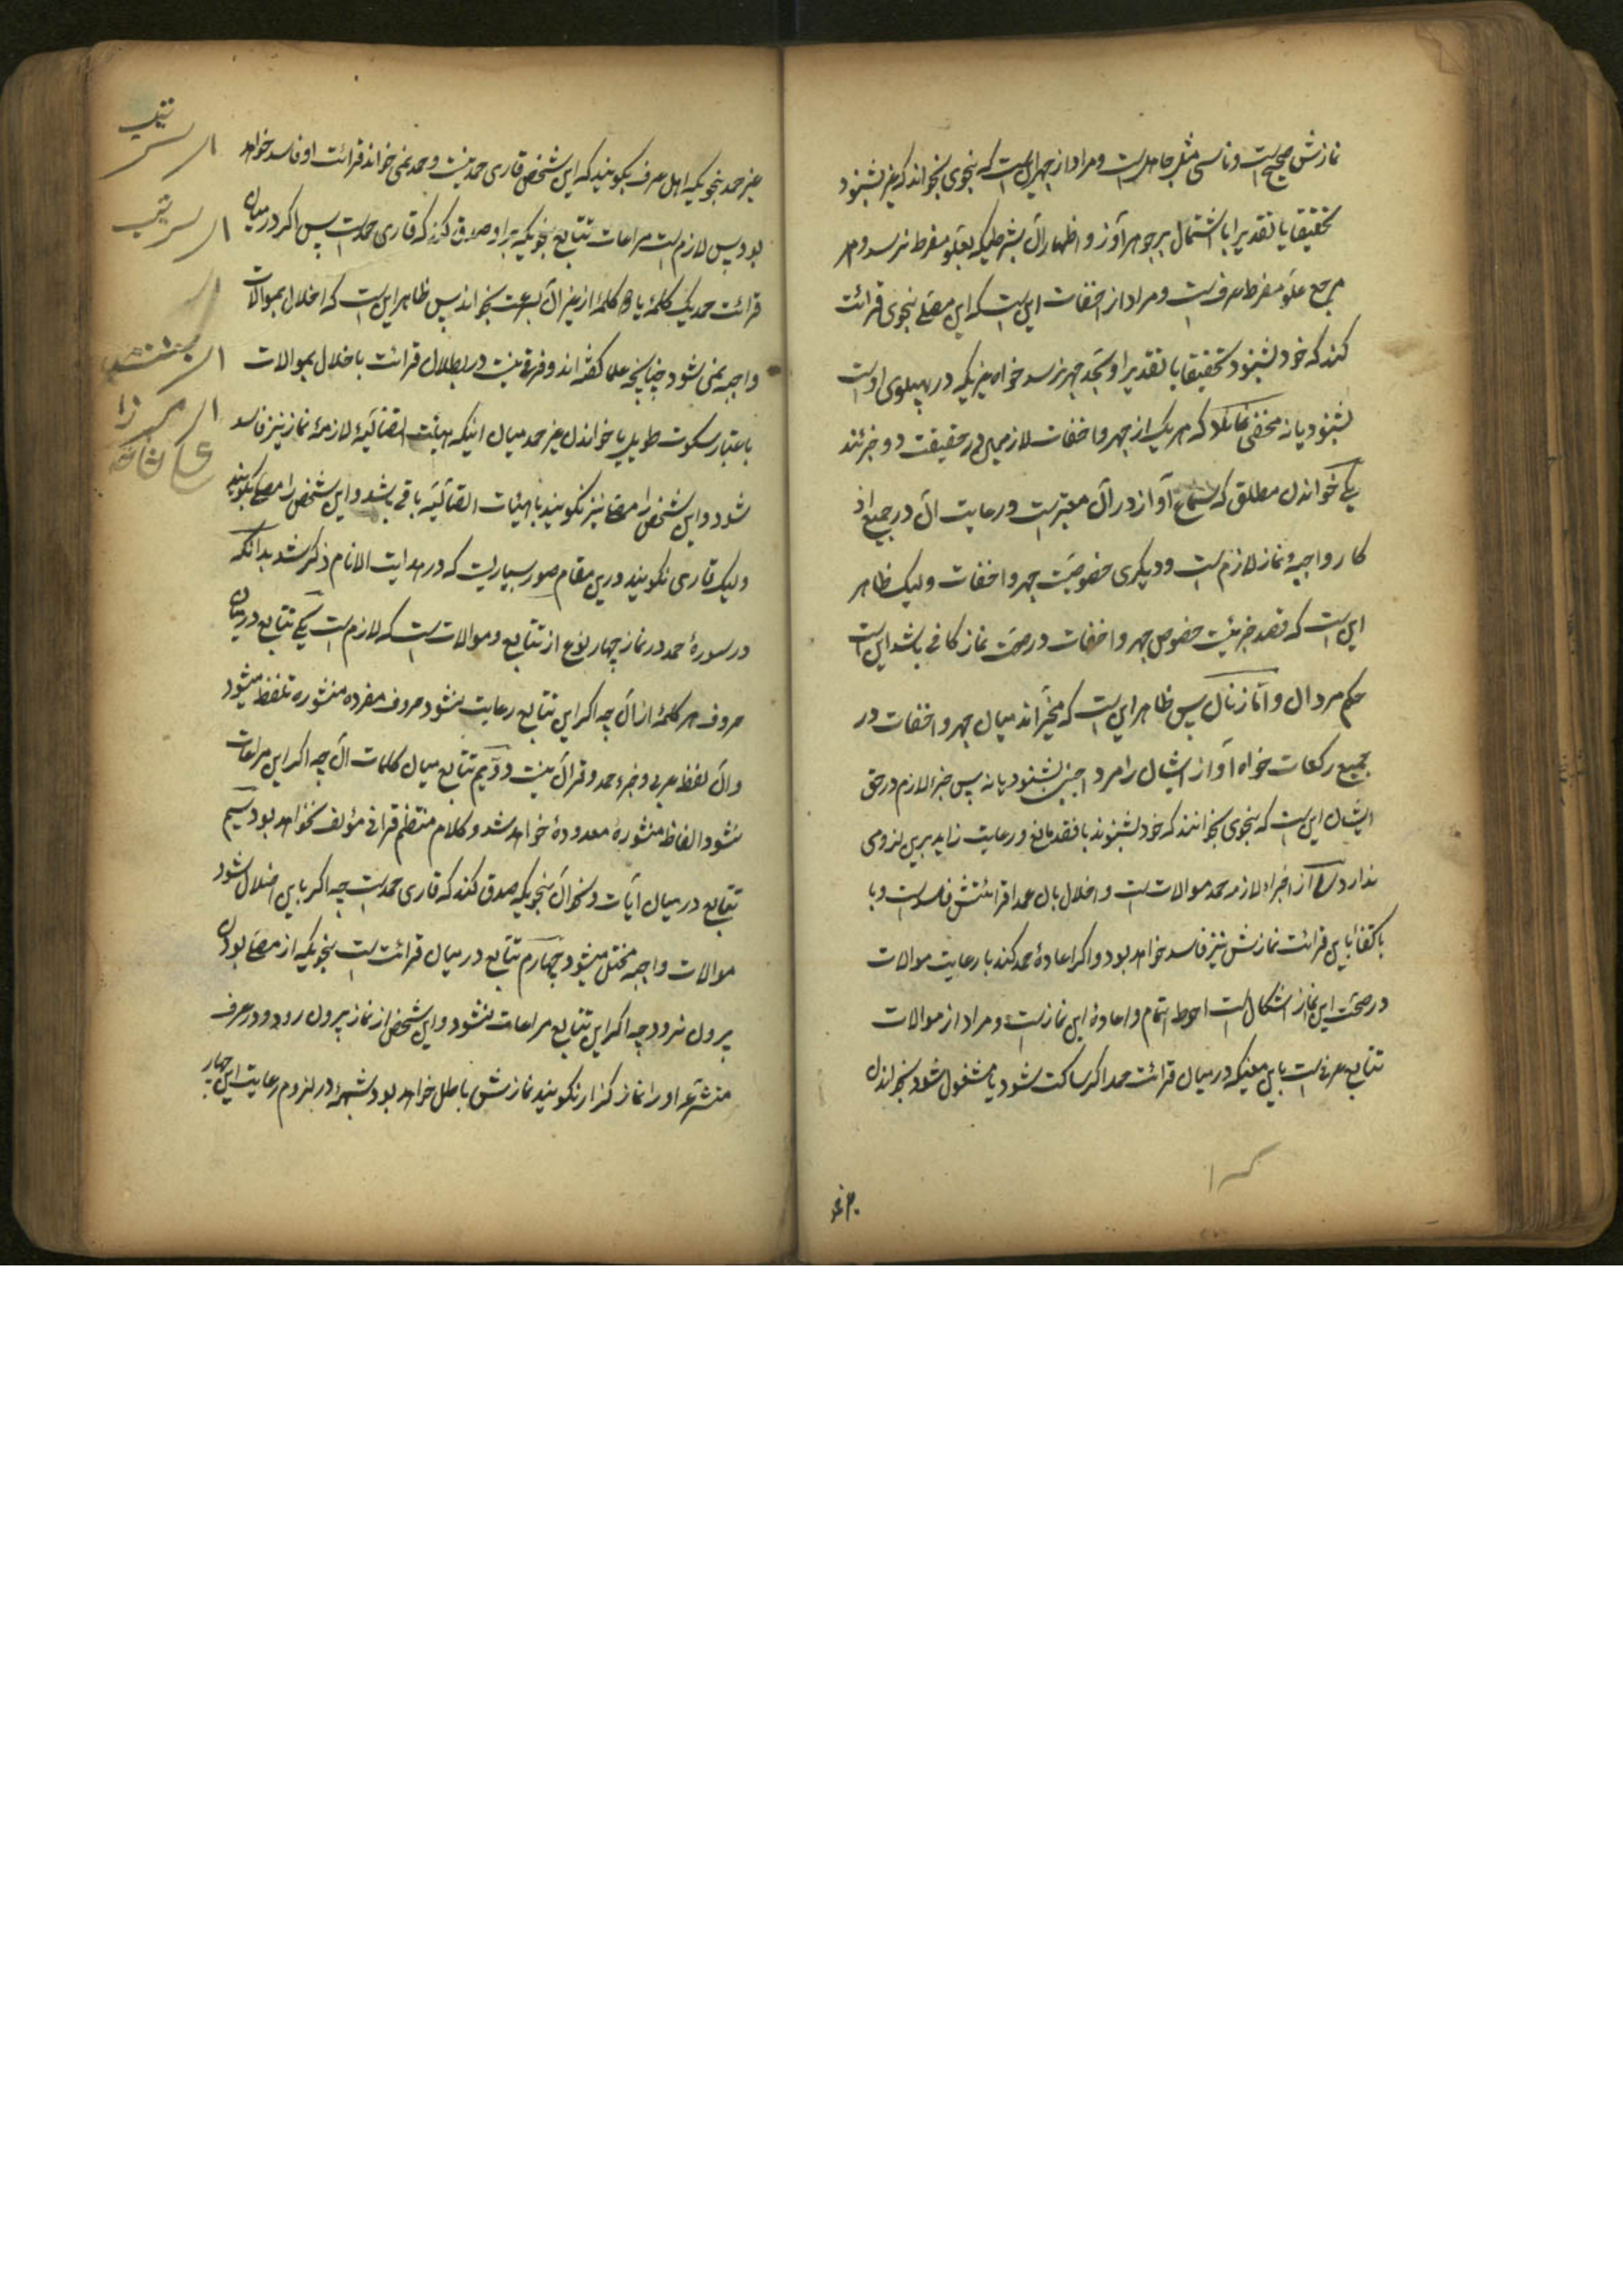 نمازش صحیح است و ناسی مثل جاهل است و مراد از جهر این است که بنحوی بخواند که غیر بشنود
تحقیقا یا تقدیرا با اشتمال بر جوهر آواز و اظهار آن بشرطیکه بعلو مفرط نرسد و هر
مرجع علو مفرط عرف است و مراد از اخفات این است که این مصلی بنحوی قرائت
کند که خود بشنود تحقیقا یا تقدیرا و بحد جهر نرسد خواه غیریکه در پهلوی اوست
بشنود یا نه مخفی نماند که هر یک از جهر و اخفات لازمین در حقیقت دو جزئند
یکی خواندن مطلق که سماع آواز در آن معتبر است و رعایت آن در جمیع اذ
کار واجبهٔ نماز لازم است و دیگری خصوصیت جهر و اخفات ولیک ظاهر
این است که قصد جزئیت خصوص جهر و اخفات در صحت نماز کافی باشد این است
حکم مردان و اما زنان پس ظاهر این است که مخیراند میان جهر و اخفات در
جمیع رکعات خواه آواز ایشان را مرد اجنبی بشنود یا نه پس جزء لازم در حق
ایشان این است که بنحوی بخوانند که خود بشنوند با فقد مانع و رعایت زاید برین لزومی
ندارد از اجزاء لازمه حمد موالات است و اخلال بآن عمدا قرائتش فاسد است و با
باکتفا باین قرائت نمازش نیز فاسد خواهد بود و اگر اعادهٔ حمد کند با رعایت موالات
در صحت این نماز اشکال است احوط اتمام و اعادهٔ این نماز است و مراد از موالات
تتابع عرفی است باین معنیکه در میان قرائت حمد اگر ساکت شود یا مشغول شود بخواندن
غیر حمد بنحویکه اهل عرف بگویند که این شخص قاری حمد نیست و حمد نمی خواند قرائت او فاسد خواهد
بود پس لازم است مراعات تتابع بنحویکه بر او صدق کند که قاری حمد است پس اگر در میان
قرائت حمد یک کلمهٔ یا دو کلمهٔ از غیر آن بسرعت بخواند پس ظاهر این است که اخلال بموالات
واجبه نمی شود چنانچه علما گفته اند و فرق نیست در بطلان قرائت باخلال بموالات
باعتبار سکوت طویل یا خواندن غیر حمد میان اینکه هیئت اتصالیهٔ لازمهٔ نماز نیز فاسد
شود و این شخص را مصلی نیز نگویند یا هیئات اتصالیه باقی باشد و این شخص را مصلی بگویند
ولیک قاری نگویند و درین مقام صور بسیار است که در هدایت الانام ذکر شد بدانکه
در سورهٔ حمد در نماز چهار نوع از تتابع و موالات است که لازم است یکی تتابع در میان
حروف هر کلمهٔ از آن چه اگر این تتابع رعایت نشود حروف مفرده منثوره تلفظ میشود
و آن لفظ عربی و جزء حمد و قرآن نیست دوّیم تتابع میان کلمات آن چه اگر این مراعات
نشود الفاظ منثورهٔ معدودهٔ خواهد شد و کلام منتظم قرانی مؤلف نخواهد بود سیّم
تتابع در میان آیات و نحو آن بنحویکه صدق کند که قاری حمد است چه اگر باین اخلال شود
موالات واجبه مختل میشود چهارم تتابع در میان قرائت است بنحویکه از مصلی بودن
بیرون نرود چه اگر این تتابع مراعات نشود و این شخص از نماز بیرون رود و در عرف
متشرعه او را نماز گزار نگویند نمازش باطل خواهد بود و شبههٔ در لزوم رعایت این چهار